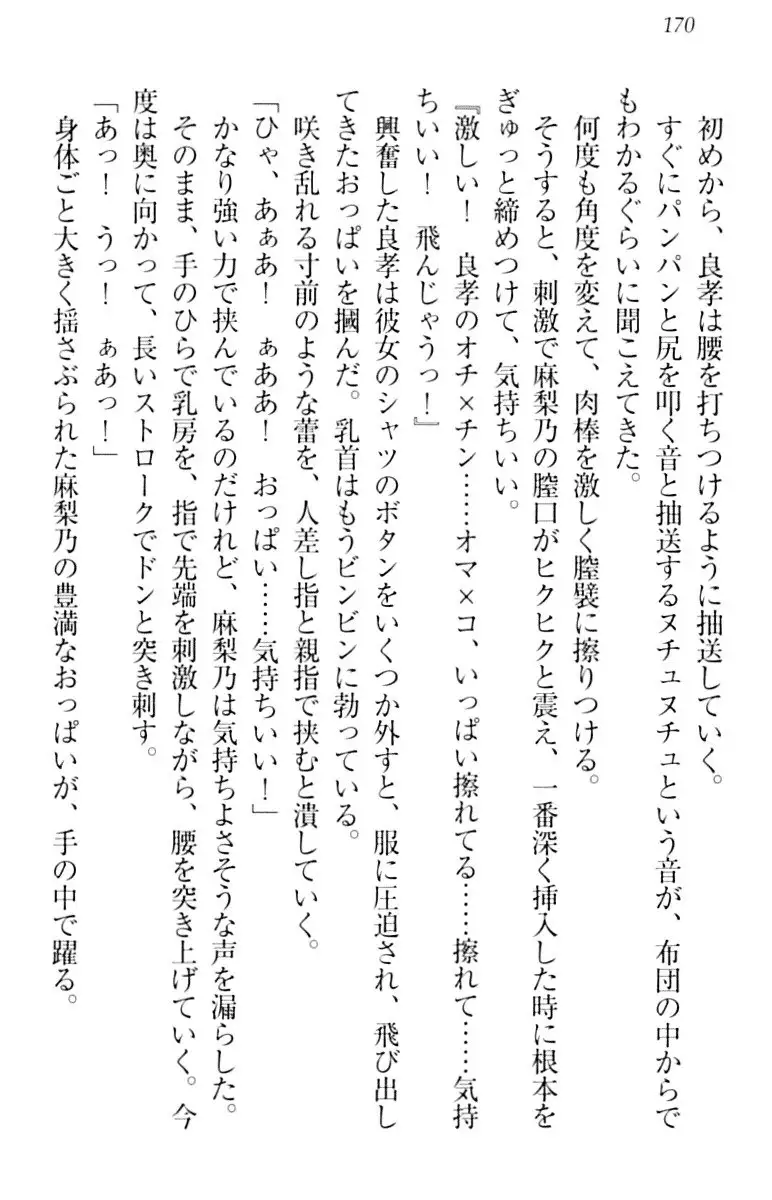 170
初めから、良孝は腰を打ちつけるように抽送していく。
すぐにパンパンと尻を叩く音と抽送するヌチュヌチュという音が、布団の中からで
もわかるぐらいに聞こえてきた。
何度も角度を変えて、肉棒を激しく膣襞に擦りつける。
そうすると、刺激で麻梨乃の膣口がヒクヒクと震え、一番深く挿入した時に根本を
ぎゅっと締めつけて、気持ちいい。
『激しい！　良孝のオチ×チン……オマ×コ、いっぱい擦れてる……擦れて……気持
ちいい！　飛んじゃうっ！』
興奮した良孝は彼女のシャツのボタンをいくつか外すと、服に圧迫され、飛び出し
てきたおっぱいを摑んだ。乳首はもうビンビンに勃っている。
咲き乱れる寸前のような蕾を、人差し指と親指で挟むと潰していく。
「ひゃ、あぁあ！　ぁああ！　おっぱい……気持ちいい！」
かなり強い力で挟んでいるのだけれど、麻梨乃は気持ちよさそうな声を漏らした。
そのまま、手のひらで乳房を、指で先端を刺激しながら、腰を突き上げていく。今
度は奥に向かって、長いストロークでドンと突き刺す。
「あっ！　うっ！　ぁあっ！」
身体ごと大きく揺さぶられた麻梨乃の豊満なおっぱいが、手の中で躍る。